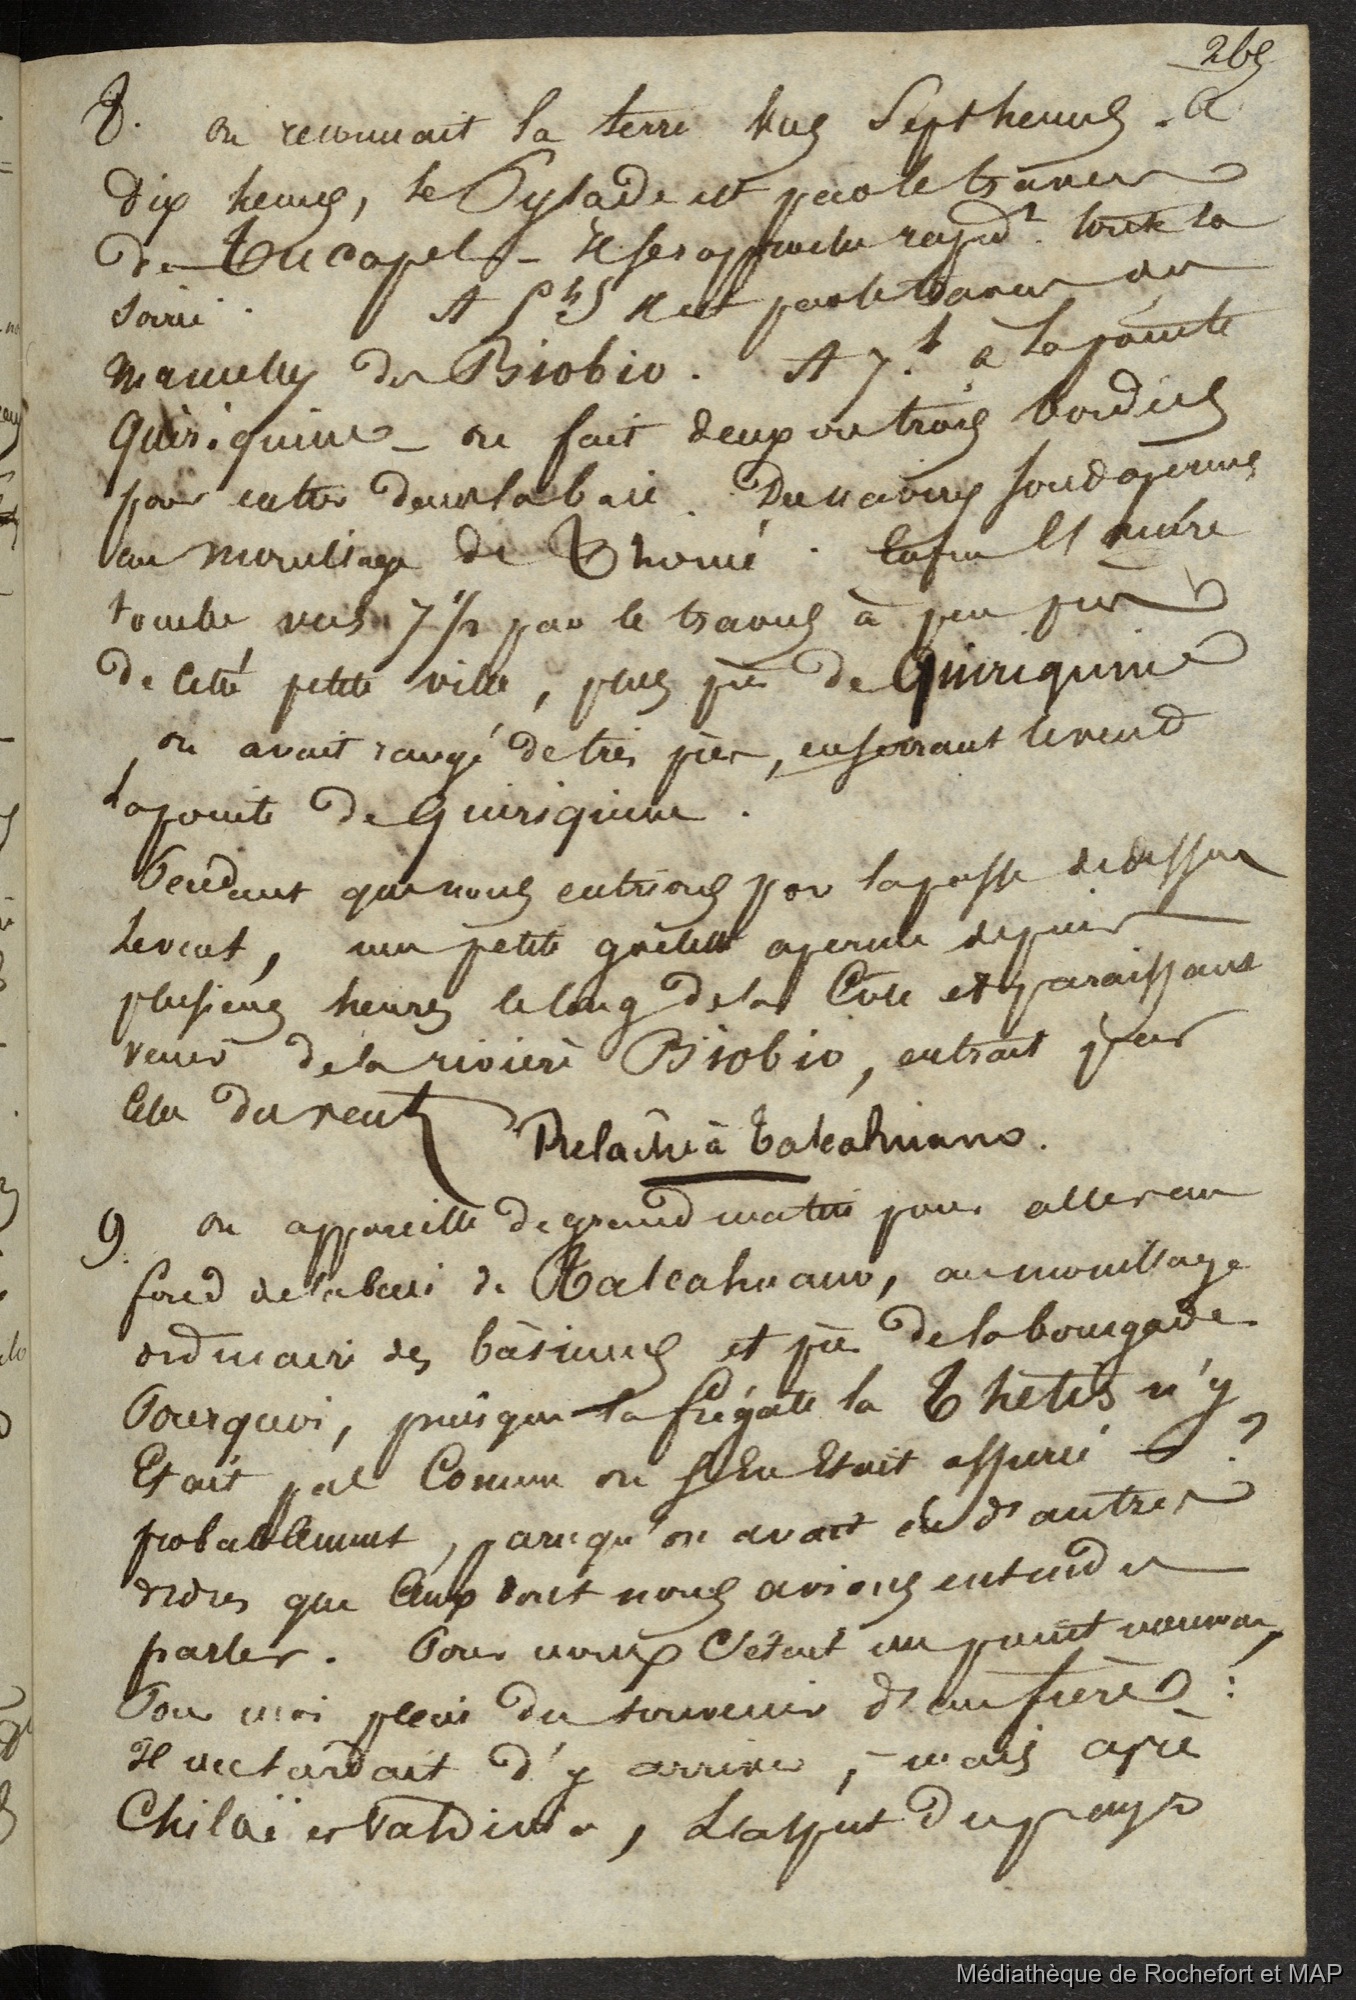 265
8. on reconnait la terre vers Sept heures. a
dix heures, le Pylade est par le travers
de Tucapel – Il s'en approche rapidt. toute la
soirée. A 5hs Il est par le travers des
mamelles de Biobio. A 7.h à la pointe
Quiriquine – on fait deux ou trois bordées
pour entrer dans la baie. Des navires sont aperçus
au mouillage de Thomé. Enfin l'ancre
tombe vers 7 1/2 par le travers à peu près
de cette petite ville, plus près de Quiriquine
on avait rangé de très près, en serrant le vend
la pointe de Quiriquine.
Pendant que nous entrions par la passe de dessus
le vent, une petite goëlette aperçue depuis
plusieurs heures le long de la Côte et paraissant
venir de la rivière Biobio, entrait par
celle du vent
Relâche à Talcahuano.
9. on appareille de grand matin pour aller au
fond de la baie de Talcahuano, au mouillage
ordinaire des bâtimens et près de la bourgade.
Pourquoi, puisque la frégate la Thétis n'y
Etait pas Comme on s'en Etait assuré ?
probablement, parcequ'on avait eu d'autres
ordres que Ceux dont nous avions entendu
parler. Pour nous C'était un point nouveau,
Pour moi plein du souvenir d'un frère :
Il me tardait d'y arriver, – mais après
Chiloë et Valdivia, L'aspect du pays
Médiathèque de Rochefort et MAP